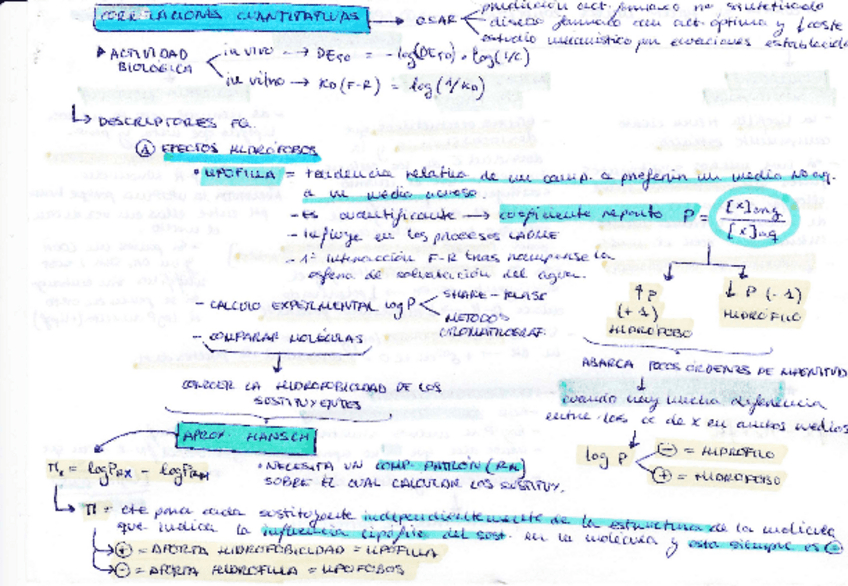 CORRELACIONES CUANTITATIVAS → QSAR
predicción act. fármaco no sintetizado
diseño fármaco con act. óptima y ↓ coste
estudio mecanístico por ecuaciones establecida
ACTIVIDAD BIOLÓGICA
in vivo → DE50 = -log(DE50) o log(1/C)
in vitro → KD (F-R) = log(1/KD)
DESCRIPTORES FQ.
① EFECTOS HIDRÓFOBOS
• LIPOFILIA = tendencia relativa de un comp. a preferir un medio no aq.
a un medio acuoso.
- Es cuantificante → coeficiente reparto P = [x]org / [x]aq
- Influye en los procesos LADME
- 1ª interacción F-R tras romperse la
esfera de solvatación del agua.
- CALCULO EXPERIMENTAL log P
SHAKE-FLASK
METODOS CROMATOGRAF.
↑ P (+1) HIDRÓFOBO
↓ P (-1) HIDRÓFILO
- COMPARAR MOLÉCULAS
CONOCER LA HIDROFOBICIDAD DE LOS
SUSTITUYENTES
ABARCA POCOS ÓRDENES DE MAGNITUD
cuando hay mucha diferencia
entre las cc de x en ambos medios
log P
⊖ = HIDRÓFILO
⊕ = HIDROFOBO
APROX. HANSCH
πx = logPRX - logPRH
• NECESITA UN COMP. PATRÓN (RH)
SOBRE EL CUAL CALCULAR LOS SUSTITUY.
π = cte para cada sustituyente independientemente de la estructura de la molécula
que indica la influencia lipófila del sust. en la molécula y esta siempre es
⊕ = APORTA HIDROFOBICIDAD = LIPOFILIA
⊖ = APORTA HIDROFILIA = LIPOFOBOS